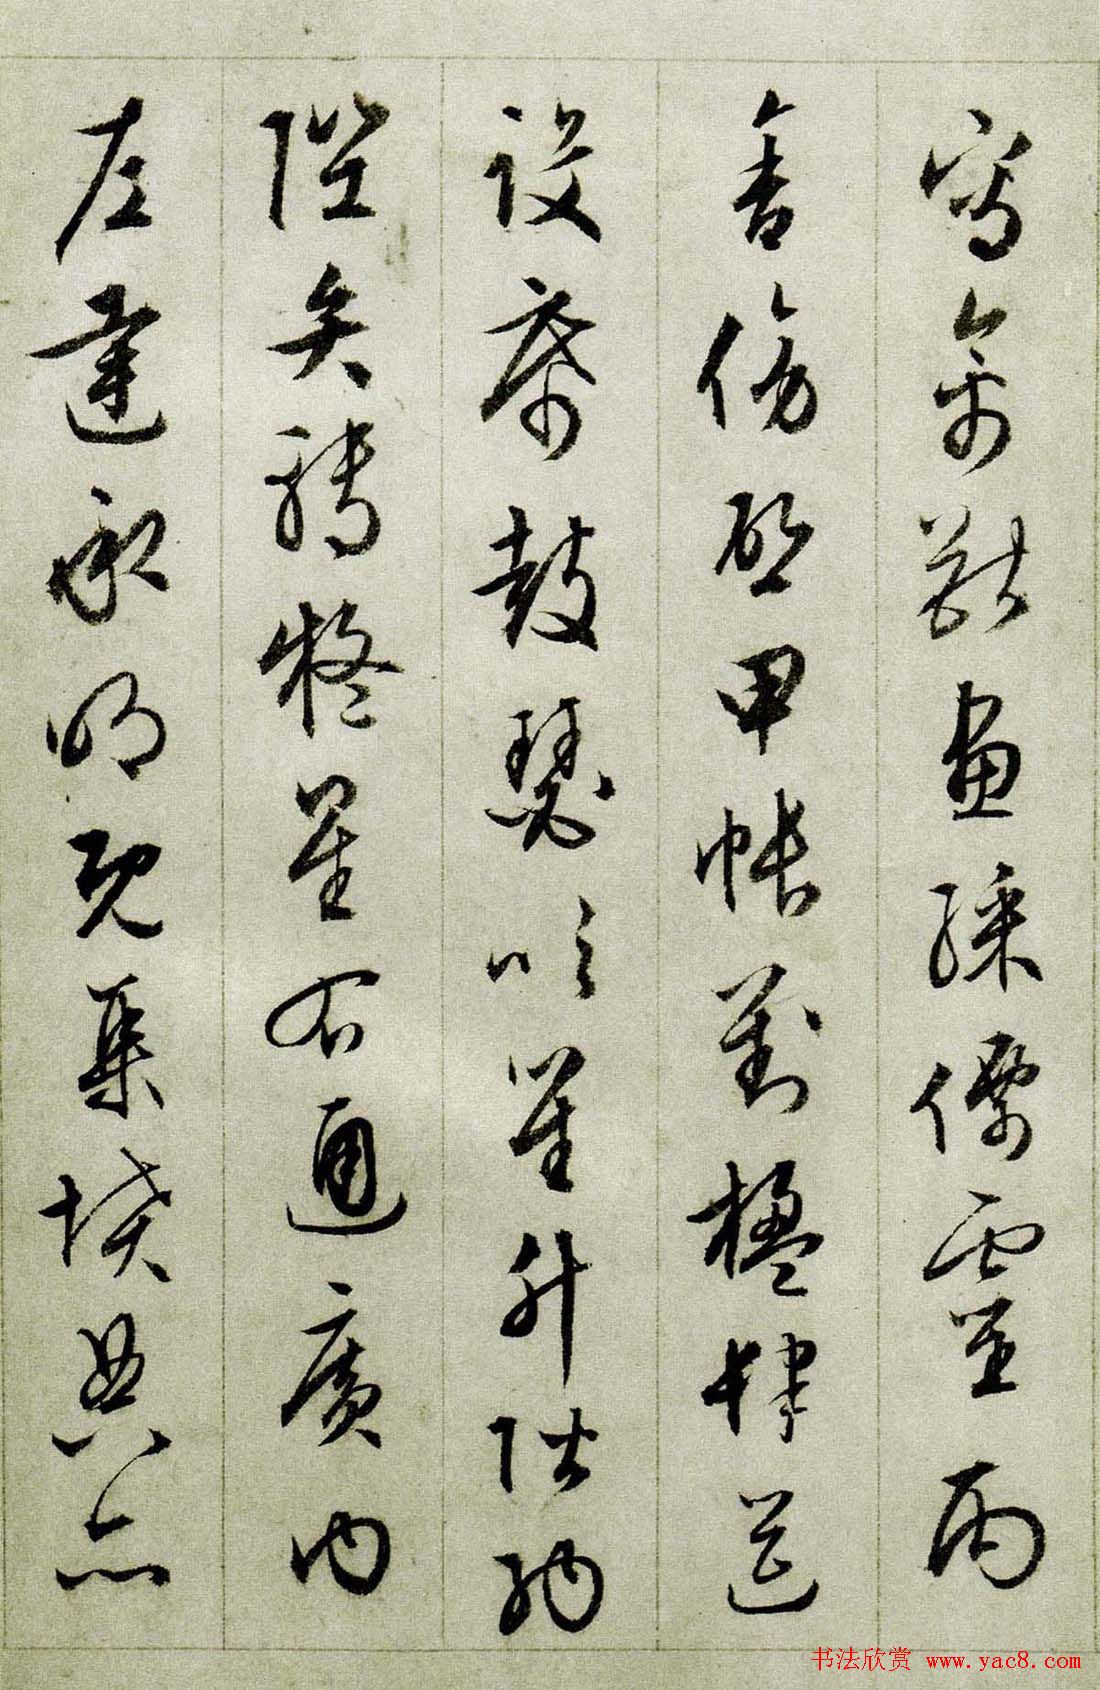 寫禽獸畫綵僊靈丙
舍傍啓甲帳對楹肆筵
設席鼓瑟吹笙升階納
陛弁轉疑星右通廣內
左達承明既集墳典亦
书法欣赏 www.yac8.com